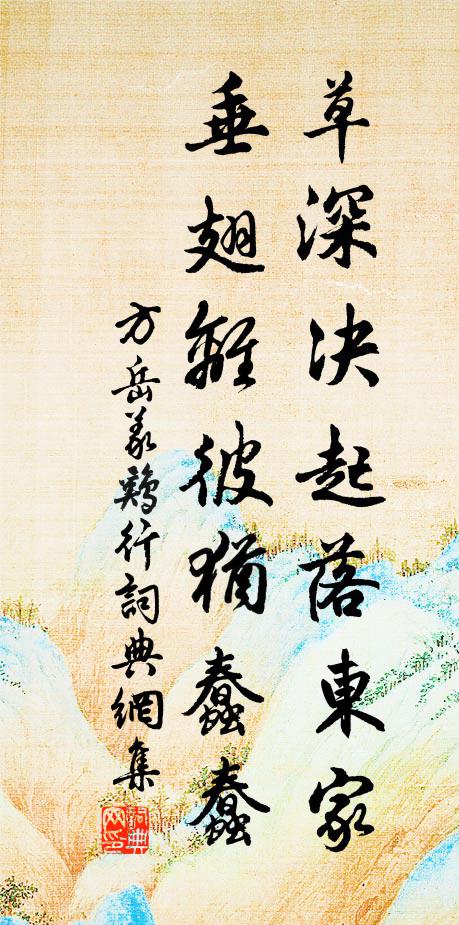 草深決起落東家
垂翅離彼猶蠢蠢
方岳義鷄行詞典網集
詞典网印